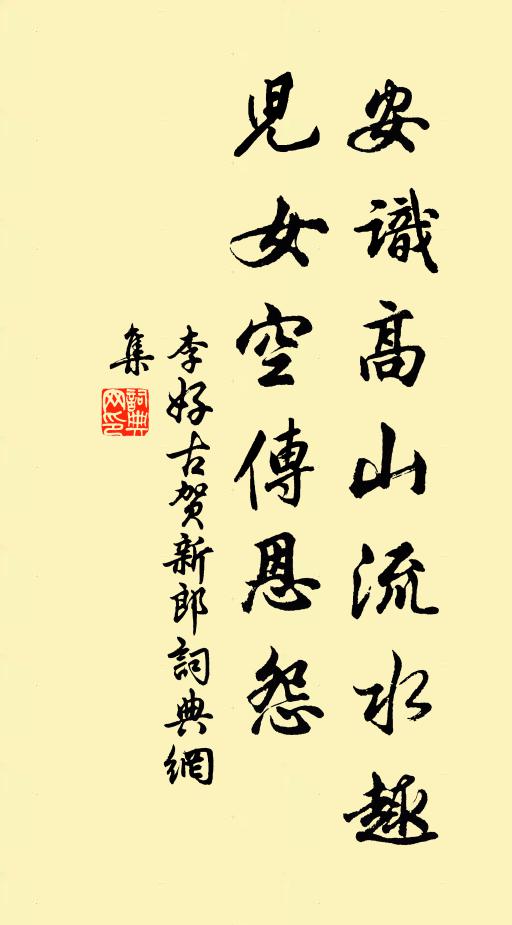 安識高山流水趣
兒女空傳恩怨
李好古賀新郎詞典網
集
詞典
网印